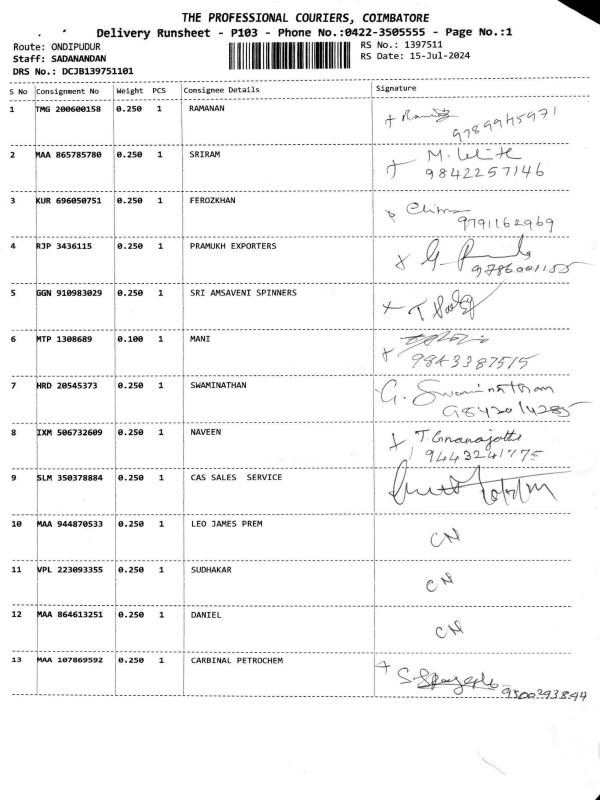 THE PROFESSIONAL COURIERS, COIMBATORE
Delivery Runsheet - P103 - Phone No.:0422-3505555 - Page No.:1
Route: ONDIPUDUR RS No.: 1397511
Staff: SADANANDAN RS Date: 15-Jul-2024
DRS No.: DCJB139751101
S No Consignment No Weight PCS Consignee Details Signature
1 TMG 200600158 0.250 1 RAMANAN
2 MAA 865785780 0.250 1 SRIRAM M.
9842257146
3 KUR 696050751 0.250 1 FEROZKHAN
9791162969
4 RJP 3436115 0.250 1 PRAMUKH EXPORTERS G.
9786001155
5 GGN 910983029 0.250 1 SRI AMSAVENI SPINNERS T
6 MTP 1308689 0.100 1 MANI
9843387515
7 HRD 20545373 0.250 1 SWAMINATHAN G. Swaminathan
9842014285
8 IXM 506732609 0.250 1 NAVEEN
9443241775
9 SLM 350378884 0.250 1 CAS SALES SERVICE
10 MAA 944870533 0.250 1 LEO JAMES PREM CN
11 VPL 223093355 0.250 1 SUDHAKAR CN
12 MAA 864613251 0.250 1 DANIEL CN
13 MAA 107869592 0.250 1 CARBINAL PETROCHEM S.